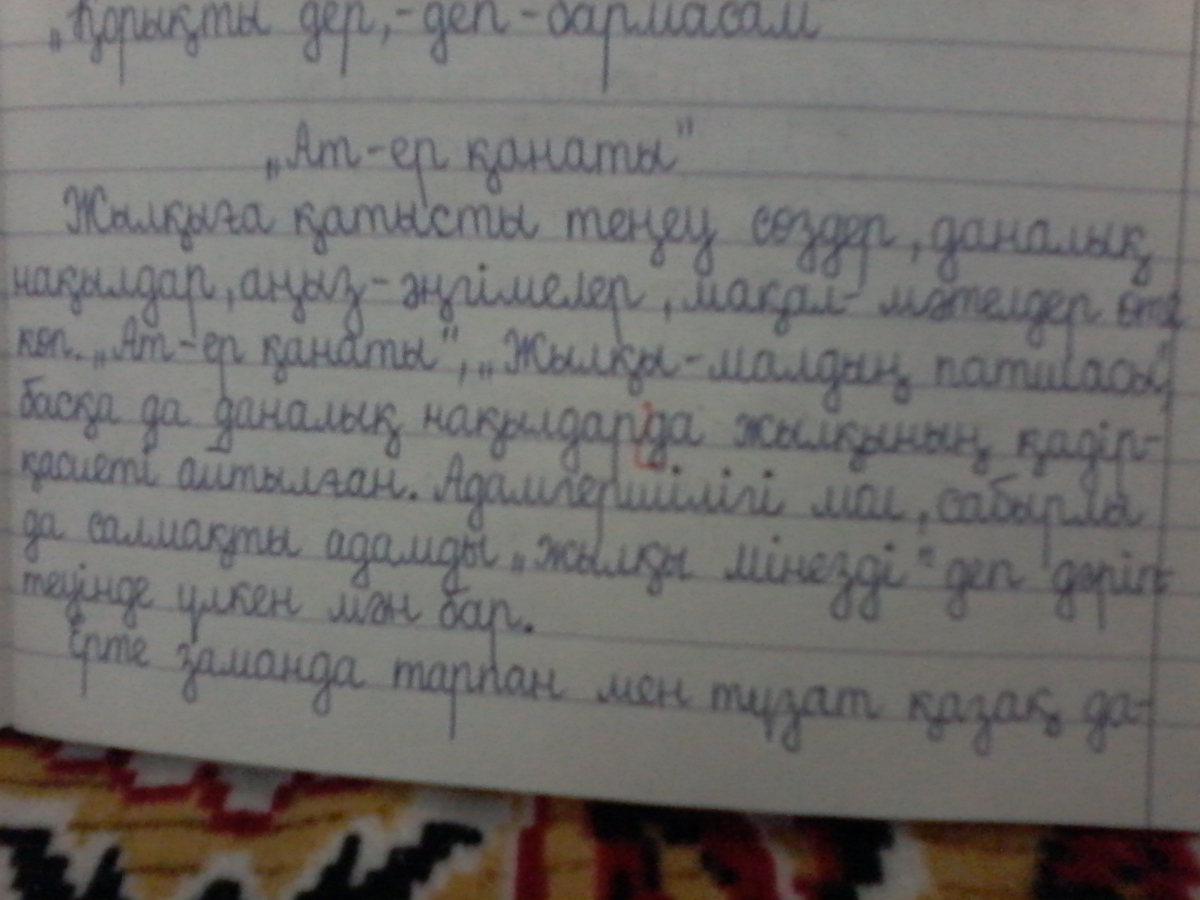 „Қорықты дер,-деп-бармасам
„Ат-ер қанаты"
Жылқыға қатысты теңеу сөздер, даналық
нақылдар, аңыз-әңгімелер, мақал-мәтелдер өте
көп. „Ат-ер қанаты", „Жылқы-малдың патшасы",
басқа да даналық нақылдарда жылқының қадір-
қасиеті айтылған. Адамгершілігі мол, сабырлы
да салмақты адамды „жылқы мінезді" деп дәріп-
теуінде үлкен мән бар.
Ерте заманда тарпан мен түзат қазақ да-